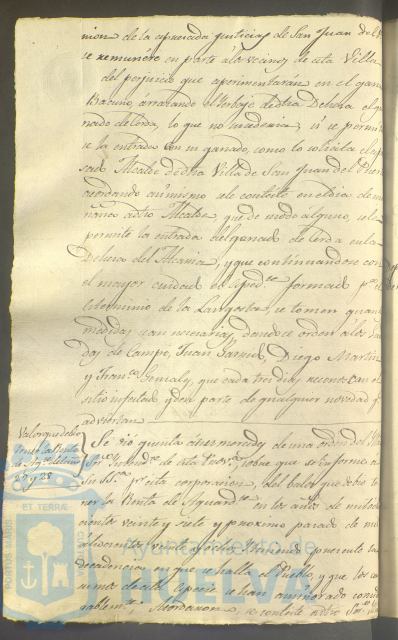 nion de la expresada justicia de San Juan del
se remunere en parte a los vecinos de esta Villa
del perjuicio que esperimentarán en el gana
Bacuno, arrasando el Yerbaje de dha Dehesa el ga
nado de Cerda, lo que no sucederia, si se permi
se la entrada con su ganado, como lo solicita el
sado Alcalde de dha Villa de San Juan del Puer
acordando asimismo se le conteste en el dia de ma
ñana a dho Alcalde, que de modo alguno, se le
permite la entrada del ganado de Cerda en la
Dehesa del Alcaria, y que continuandose con
el mayor cuidado el Exped.te formado p.a el
esterminio de la Langosta, se tomen quan
medidas sean necesarias dandose orden a los
das de Campo, Juan Garrido, Diego Martin
y Fran.co Gonzalez, que cada tres dias reconozcan el
sitio infestado y den parte de qualquier novedad q
adviertan
Valor que debio
tener la Renta
de Ag.te
27 y 28
Se dió quenta de una orden del
Intend.te de esta Prov.a sobre que se informe
p.r esta corporacion, del valor que debio te
ner la Renta de Aguard.te en los años de mil
cientos veinte y siete y procsimo pasado de mil
ochocientos veinte y ocho, teniendo presente la
decadencia en que se halla el Pueblo, y que los con
sumos de esta especie se han aminorado consi
derablem.te Acordaron se conteste a dho
PORTUS MARIS
ET TERRÆ
CUSTODIA
Ayuntamiento de
HUELVA